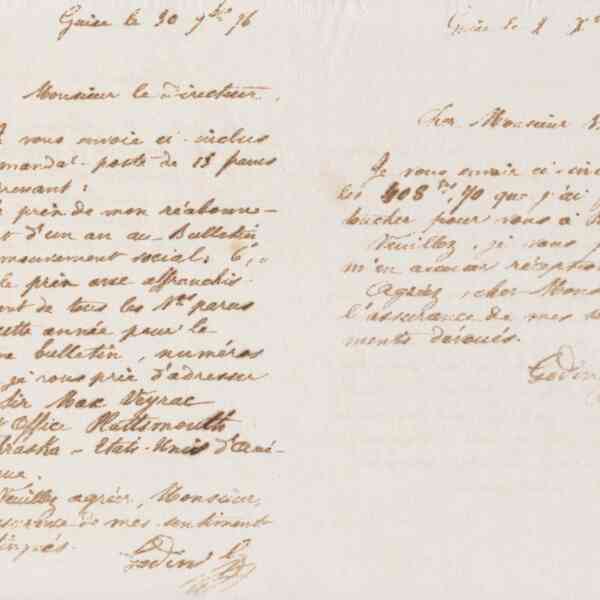 Guise le 30 7bre 76
Monsieur le Directeur,
Je vous envoie ci-inclus
mandat-poste de 13 francs
prenant :
prix de mon réabonne-
t d'un an au Bulletin
mouvement social. 6f,,
le prix avec affranchis-
ment de tous les Nos parus
cette année pour le
me bulletin, numéros
je vous prie d'adresser
Sir Max Veyrac
Office Plattsmouth
braska - Etats-Unis d'Amé-
que.
Veuillez agréer, Monsieur,
assurance de mes sentiment
Godin
Guise le 8
Cher Monsieur
Je vous envoie ci-inc
les 408 frs,70 que j'ai
toucher pour vous à
Veuillez, je vous
m'en accuser réception
Agréez, cher Mons
l'assurance de mes se
ments dévoués.
Godin